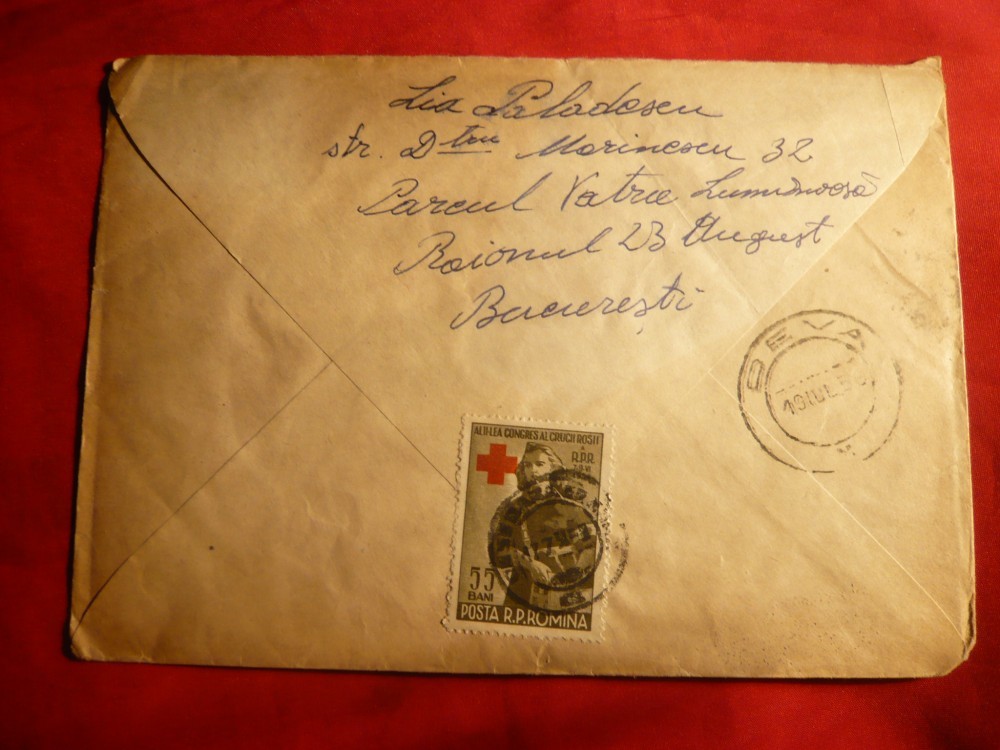 Lia Paladescu
str. Dtru Marinescu 32
Parcul Vatra Luminoasă
Raionul 23 August
București
DEVA
19 IUL.
AL II-LEA CONGRES AL CRUCII ROȘII
R.P.R.
55
BANI
POSTA R.P.ROMINA